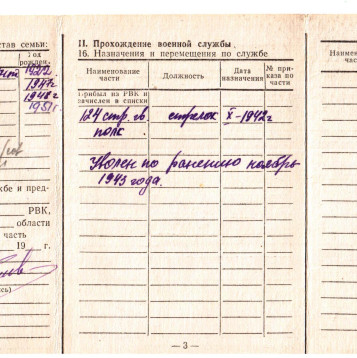 став семьи:
Год
рожден.
1922
1947г
1948г
1951г.
жбе и пред-
РВК,
области
часть
19 г.
сь)
II. Прохождение военной службы
16. Назначения и перемещения по службе
Наименование части
Должность
Дата назначения
№ при-
каза по
части
Прибыл из РВК и
зачислен в списки
124 стр. гв. стрелок X-1942г
полк.
Уволен по ранению ноябрь
1943 года.
— 3 —
Наименование
части